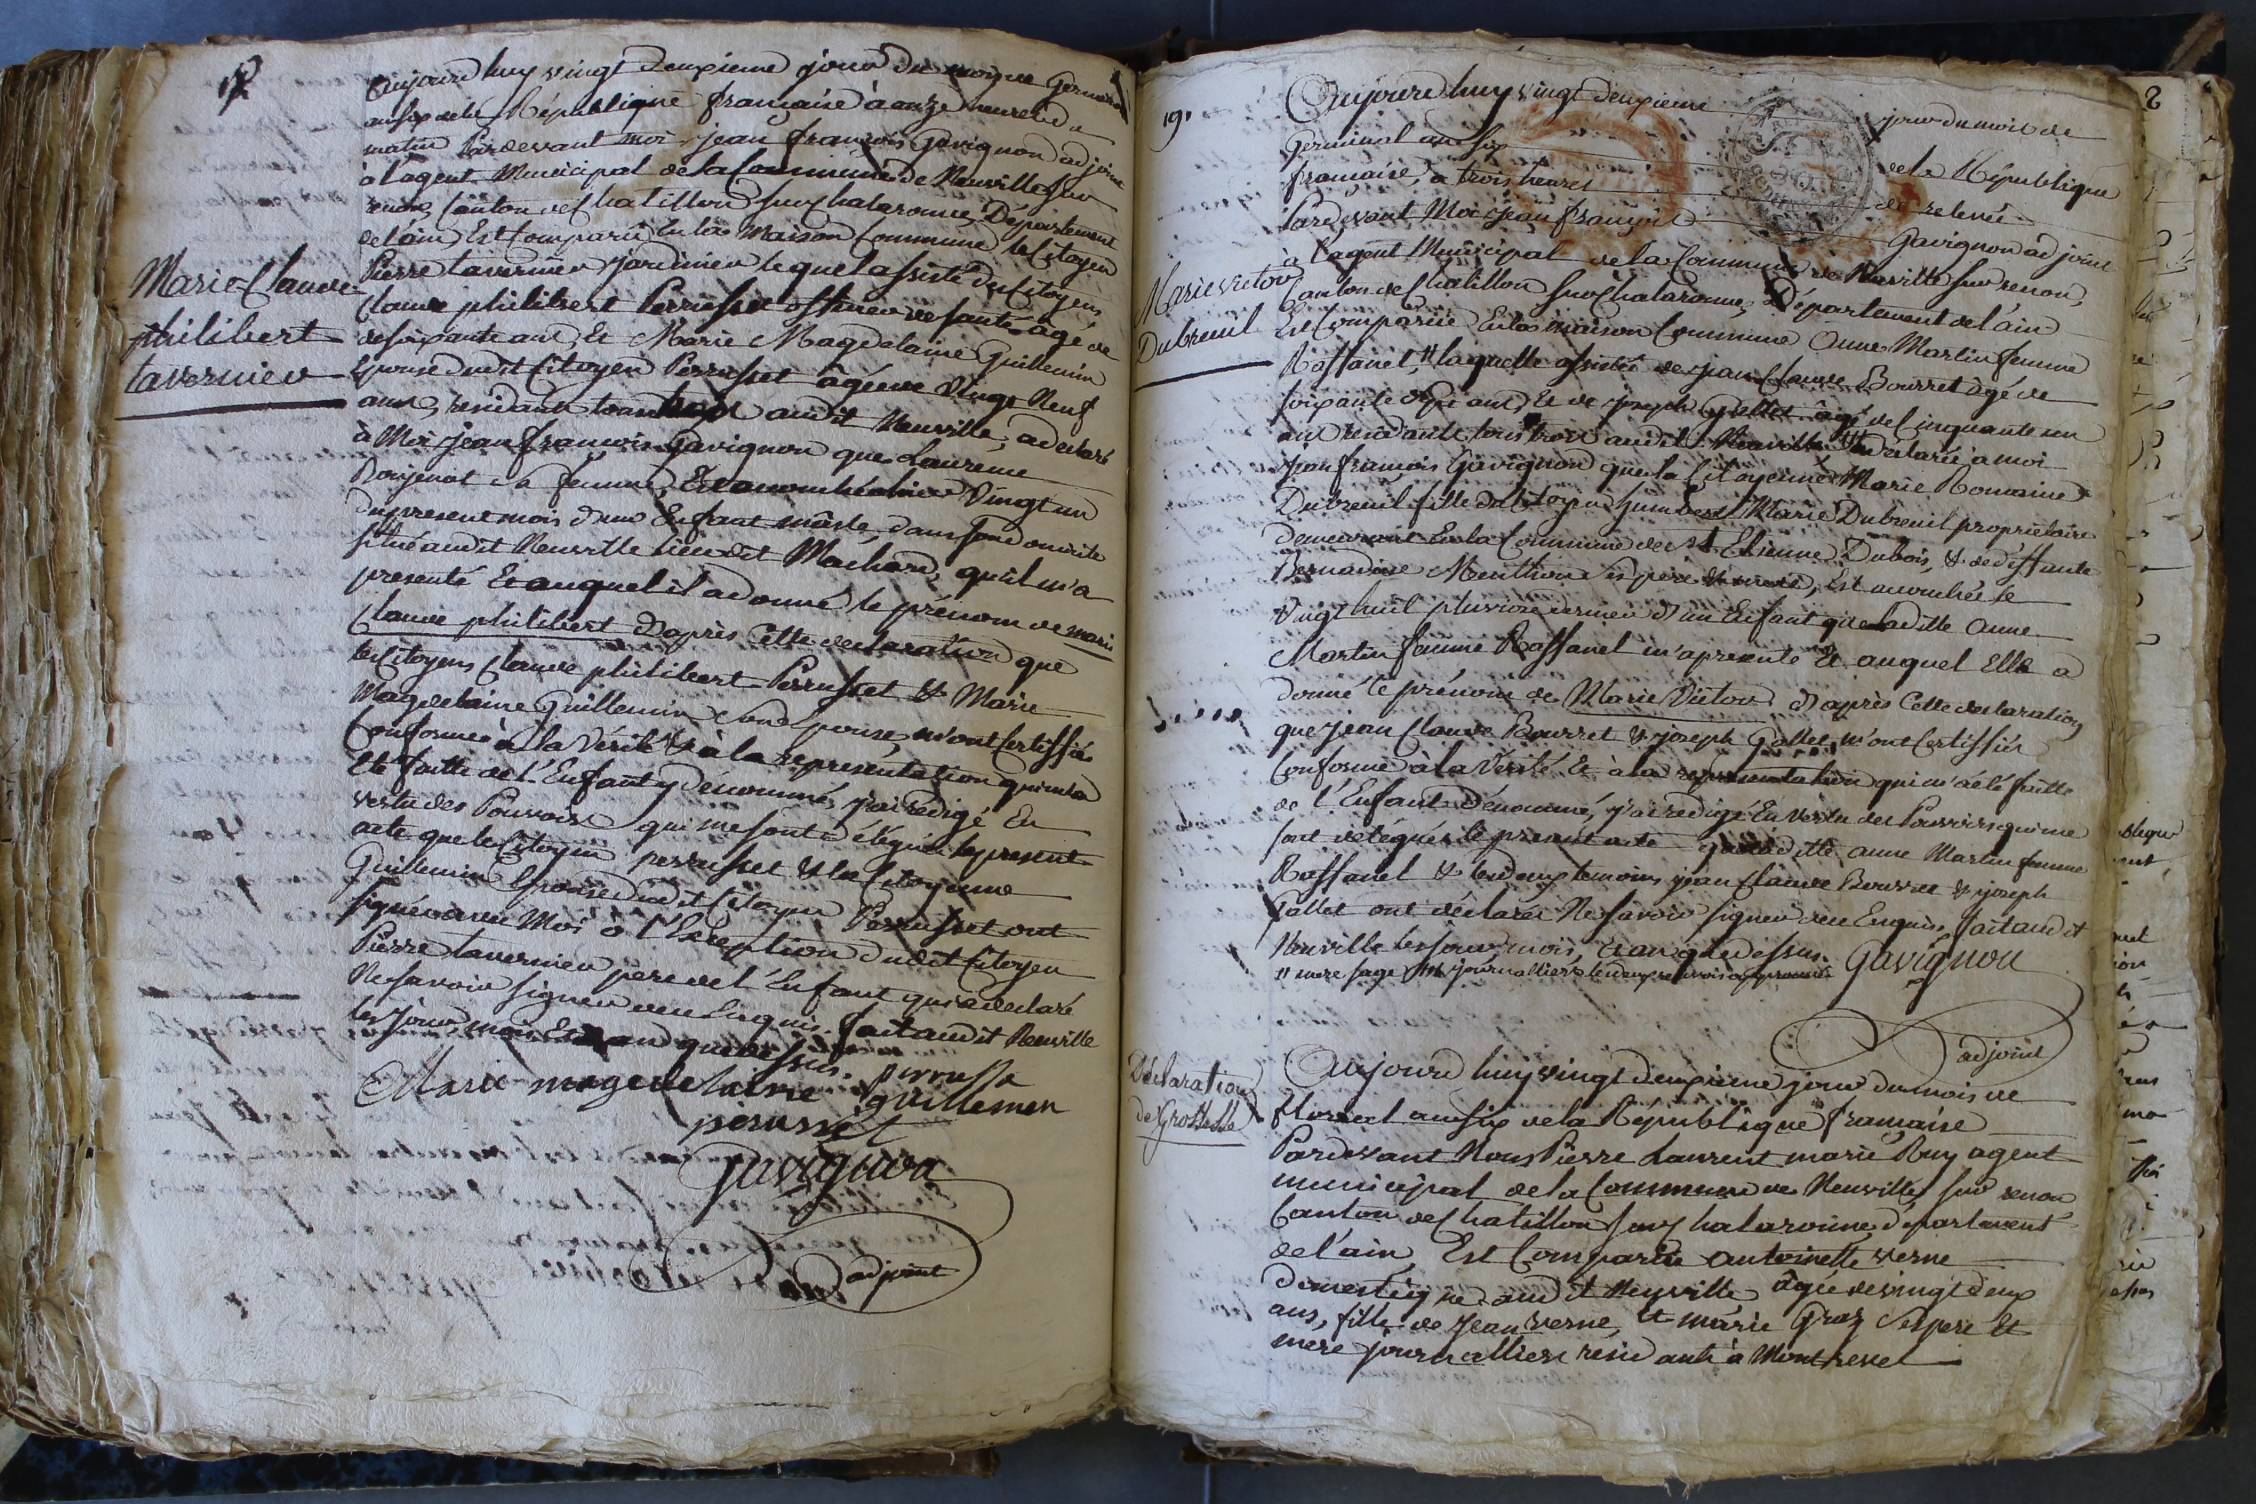 Marie Claude
philibert
tavernier
Aujourd huy vingt deuxieme jour du mois de Germinal
an six de la République française à onze heures du
matin Pardevant moi Jean françois Gavignon adjoint
à l'agent Municipal de la Commune de Neuville sur
renon, Canton de Chatillon sur Chalaronne, Département
de l'ain Est Comparu En la Maison Commune le Citoyen
Pierre tavernier jardinier lequel assisté du Citoyen
Claude philibert Perrusset officier de santé agé de
soixante ans, Et Marie Magdelaine Guillemin
Epouse dudit Citoyen Perrusset âgée de Vingt Neuf
ans, residants tous audit Neuville, a déclaré
à Moi Jean françois Gavignon que Laurence
sa femme, Est accouchée hier Vingt un
du present mois d'un Enfant mâsle, dans son domicile
situé audit Neuville lieu dit Machard, qu'il m'a
presenté Et auquel il a donné le prénom de marie
Claude philibert D'après Cette declaration que
les Citoyens Claude philibert Perrusset & Marie
Magdelaine Guillemin son Epouse, m'ont Certiffié
Conforme à la Vérité & à la representation qui m'a
Eté faitte de l'Enfant y dénommé, j'ai rédigé En
vertu des Pouvoirs qui me sont délégués le present
acte que le Citoyen perrusset & la Citoyenne
Guillemin Epouse dudit Citoyen Perrusset ont
signé avec Moi à l'Exception dudit Citoyen
Pierre tavernier pere de l'Enfant qui a declaré
Ne savoir signer de ce Enquis. fait audit Neuville
les Jour, mois Et an que dessus.
Marie magdelaine guillemin
perusset
Gavignon
adjoint
19.
Marie victor
Dubreuil
Aujourd huy vingt deuxieme jour du mois de
Germinal an six de la République
française, à trois heures de relevée
Pardevant Moi Jean françois Gavignon adjoint
à l'agent Municipal de la Commune de Neuville sur renon,
Canton de Chatillon sur Chalaronne, Département de l'ain
Est Comparue En la maison Commune Anne Martin femme
Raffanel, laquelle assistée de jean Claude Bourret âgé de
soixante ans, Et de joseph Gallet âgé de Cinquante un
ans residants tous trois audit Neuville a déclaré à moi
Jean françois Gavignon que la Citoyenne Marie Romaine
Dubreuil fille du Citoyen Humbert Marie Dubreuil proprietaire
demeurant En la Commune de St Etienne Dubois, & de deffunte
Bernardine Menthon ses père & mere, Est accouchée le
Vingt huit pluviose dernier d'un Enfant que ladite Anne
Martin femme Raffanel m'a presenté Et auquel Elle a
donné le prénom de Marie Victor D'après Cette declaration
que Jean Claude Bourret & joseph Gallet m'ont Certiffiée
Conforme à la Vérité Et à la representation qui m'a été faitte
de l'Enfant Dénommé, j'ai redigé En Vertu des Pouvoirs qui me
sont délégués le present acte que ladite anne Martin femme
Raffanel & les deux temoins jean Claude Bourret & joseph
Gallet ont déclaré Ne savoir signer de ce Enquis. fait audit
Neuville les jour mois, Et an que dessus. Gavignon
adjoint
Déclaration
de Grossesse
Aujourd huy vingt deuxieme jour du mois de
floreal an six de la République française
Pardevant Nous Pierre Laurent marie Ruy agent
municipal de la Commune de Neuville sur renon
Canton de Chatillon sur Chalaronne, département
de l'ain Est Comparue Antoinette verne
domestique audit Neuville âgée de vingt deux
ans, fille de Jean verne, Et marie Graz ses pere Et
mere journalliers residants à Montrevel